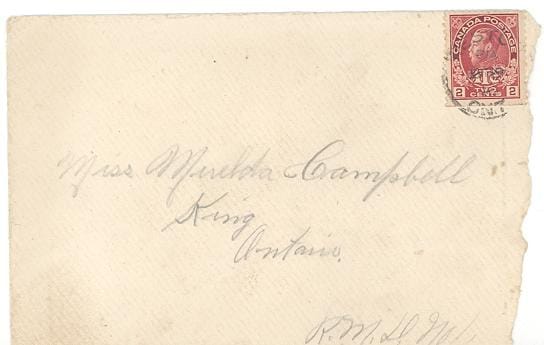 CANADA POSTAGE
2 CENTS 2
Miss Murelda Campbell
King
Ontario.
R.M.D. No 1